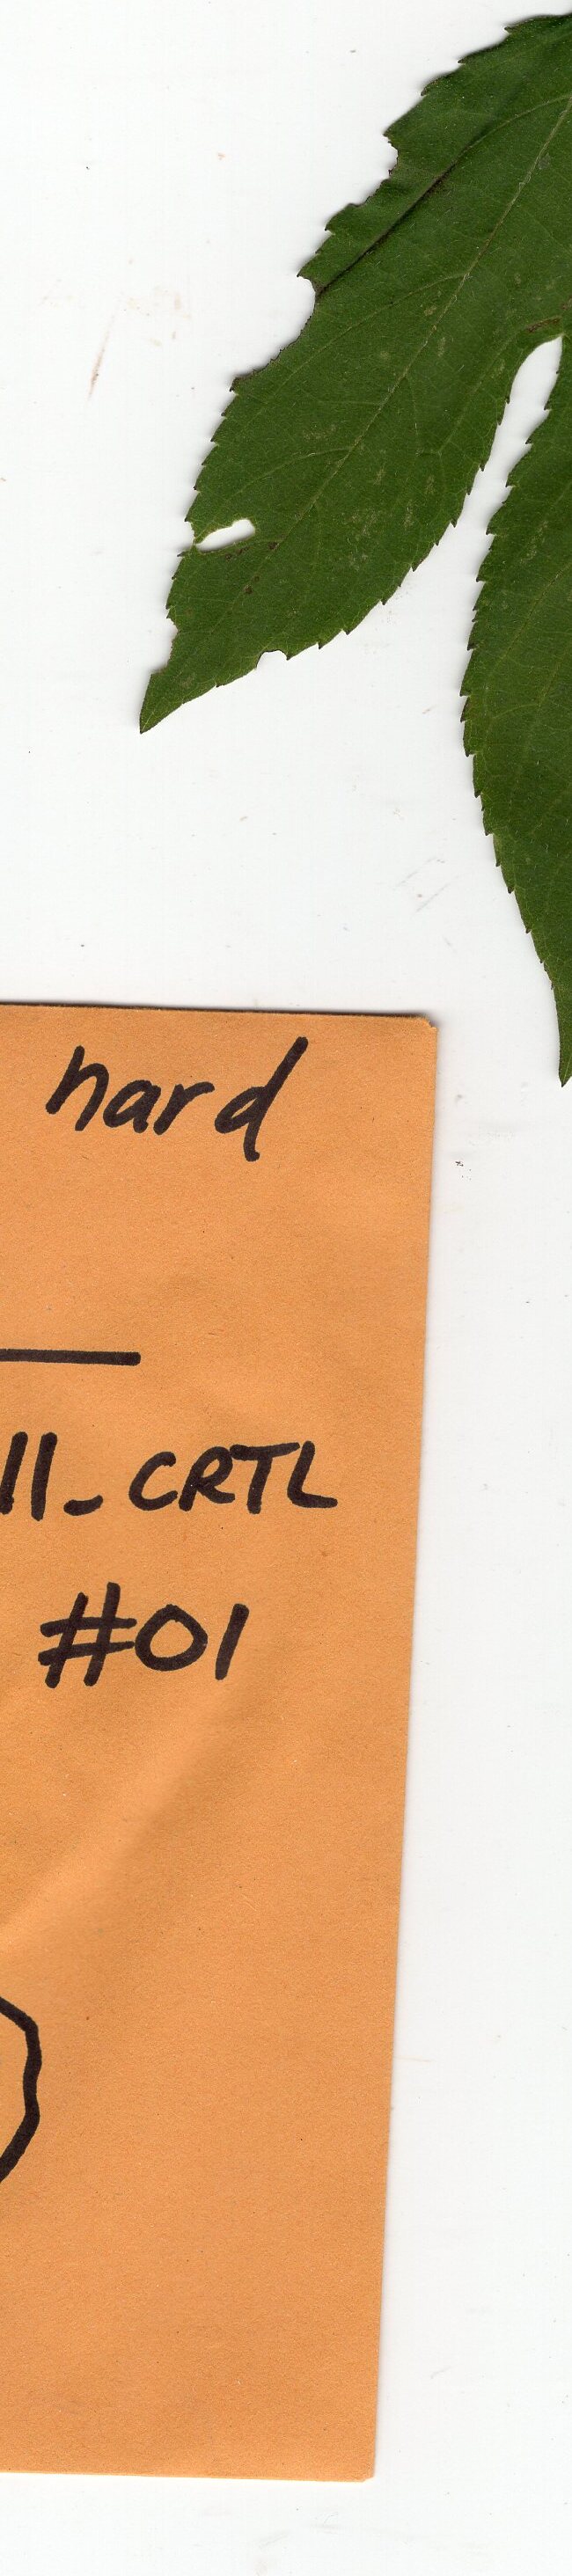 hard
11_CRTL
#01